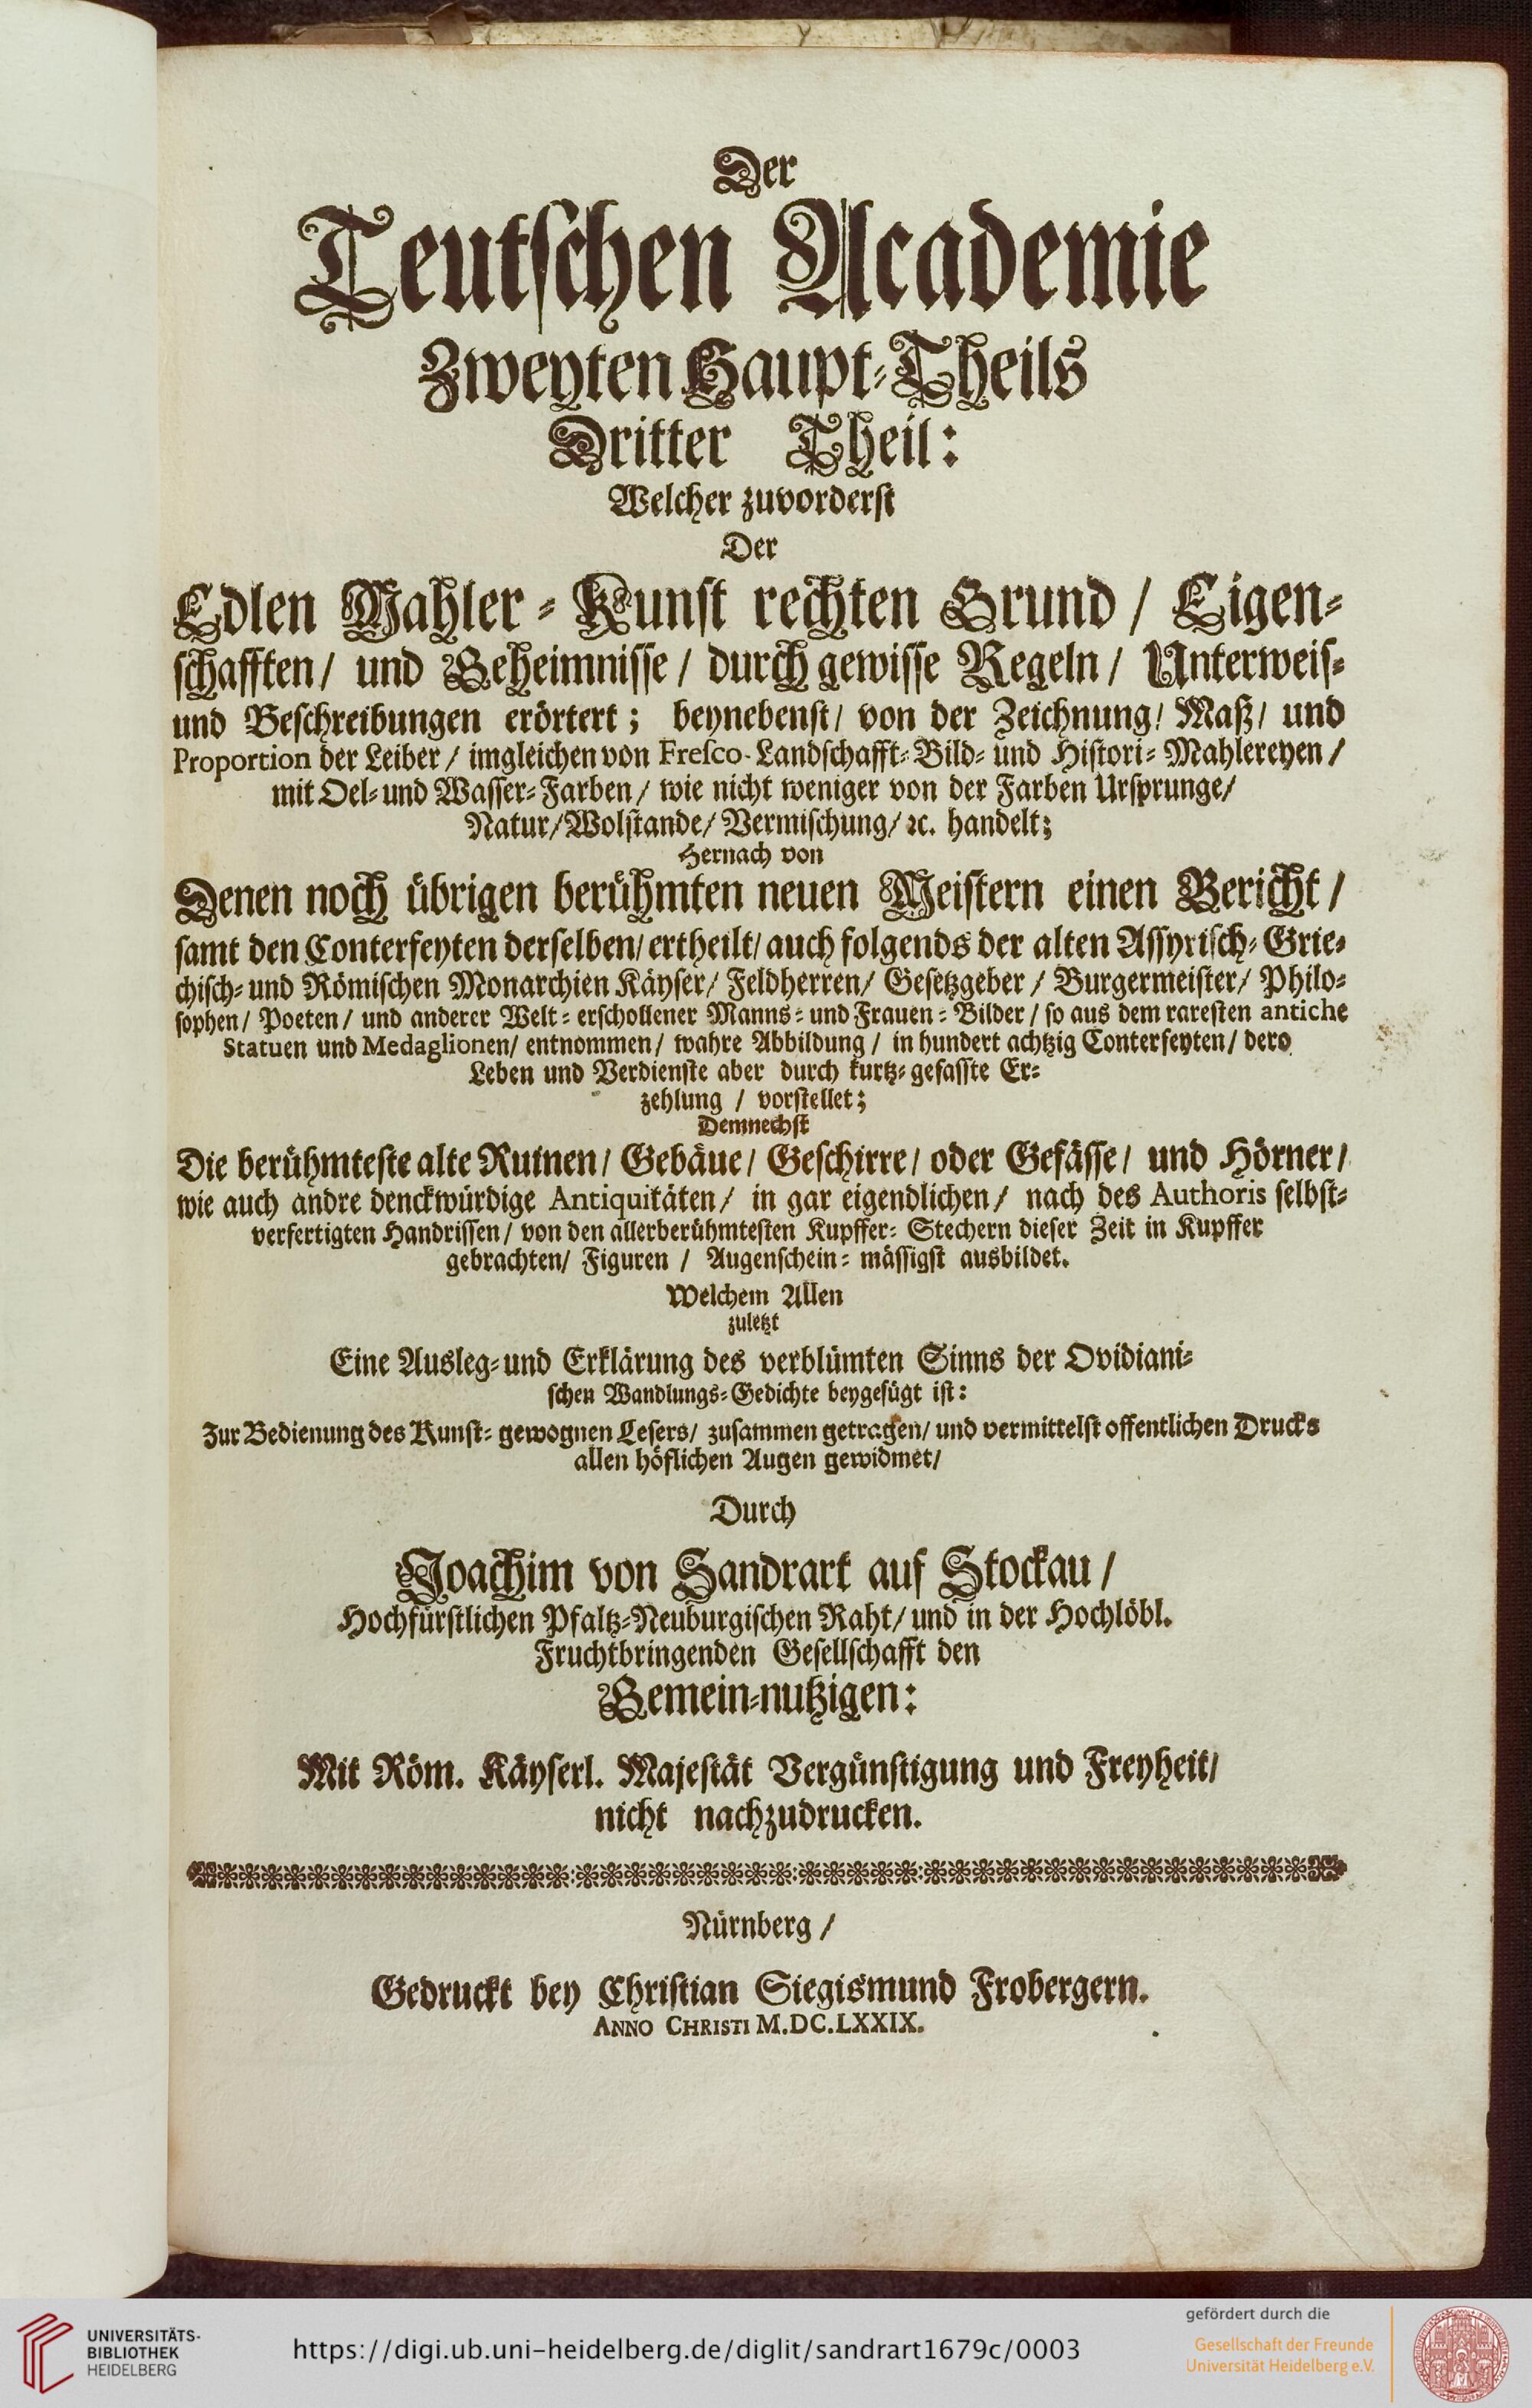 Der
Teutschen Academie
Zweyten Haupt-Theils
Dritter Theil:
Welcher zuvorderst
Der
Edlen Mahler-Kunst rechten Grund / Eigen-
schafften / und Geheimnisse / durch gewisse Regeln / Unterweis-
und Beschreibungen erörtert; beynebenst / von der Zeichnung / Maß / und
Proportion der Leiber / imgleichen von Fresco-Landschafft-Bild- und Histori-Mahlereyen /
mit Oel- und Wasser-Farben / wie nicht weniger von der Farben Ursprunge /
Natur / Wolstande / Vermischung / ꝛc. handelt;
Hernach von
Denen noch übrigen berühmten neuen Meistern einen Bericht /
samt den Conterfeyten derselben / ertheilt / auch folgends der alten Assyrisch-Grie-
chisch- und Römischen Monarchien Käyser / Feldherren / Gesetzgeber / Burgermeister / Philo-
sophen / Poeten / und anderer Welt-erschollener Manns- und Frauen-Bilder / so aus dem raresten antiche
Statuen und Medaglionen / entnommen / wahre Abbildung / in hundert achtzig Conterfeyten / dero
Leben und Verdienste aber durch kurtz-gefasste Er-
zehlung / vorstellet;
Demnechst
Die berühmteste alte Ruinen / Gebäue / Geschirre / oder Gefässe / und Hörner /
wie auch andre denckwürdige Antiquitäten / in gar eigendlichen / nach des Authoris selbst-
verfertigten Handrissen / von den allerberühmtesten Kupffer-Stechern dieser Zeit in Kupffer
gebrachten / Figuren / Augenschein-mässigst ausbildet.
Welchem Allen
zuletzt
Eine Ausleg- und Erklärung des verblümten Sinns der Ovidiani-
schen Wandlungs-Gedichte beygefügt ist:
Zur Bedienung des Kunst-gewognen Lesers / zusammen getragen / und vermittelst offentlichen Drucks
allen höflichen Augen gewidmet /
Durch
Joachim von Sandrart auf Stockau /
Hochfürstlichen Pfaltz-Neuburgischen Raht / und in der Hochlöbl.
Fruchtbringenden Gesellschafft den
Gemein-nutzigen:
Mit Röm. Käyserl. Majestät Vergünstigung und Freyheit /
nicht nachzudrucken.
Nürnberg /
Gedruckt bey Christian Siegismund Frobergern.
ANNO CHRISTI M.DC.LXXIX.
UNIVERSITÄTS-
BIBLIOTHEK
HEIDELBERG
https://digi.ub.uni-heidelberg.de/diglit/sandrart1679c/0003
gefördert durch die
Gesellschaft der Freunde
Universität Heidelberg e.V.